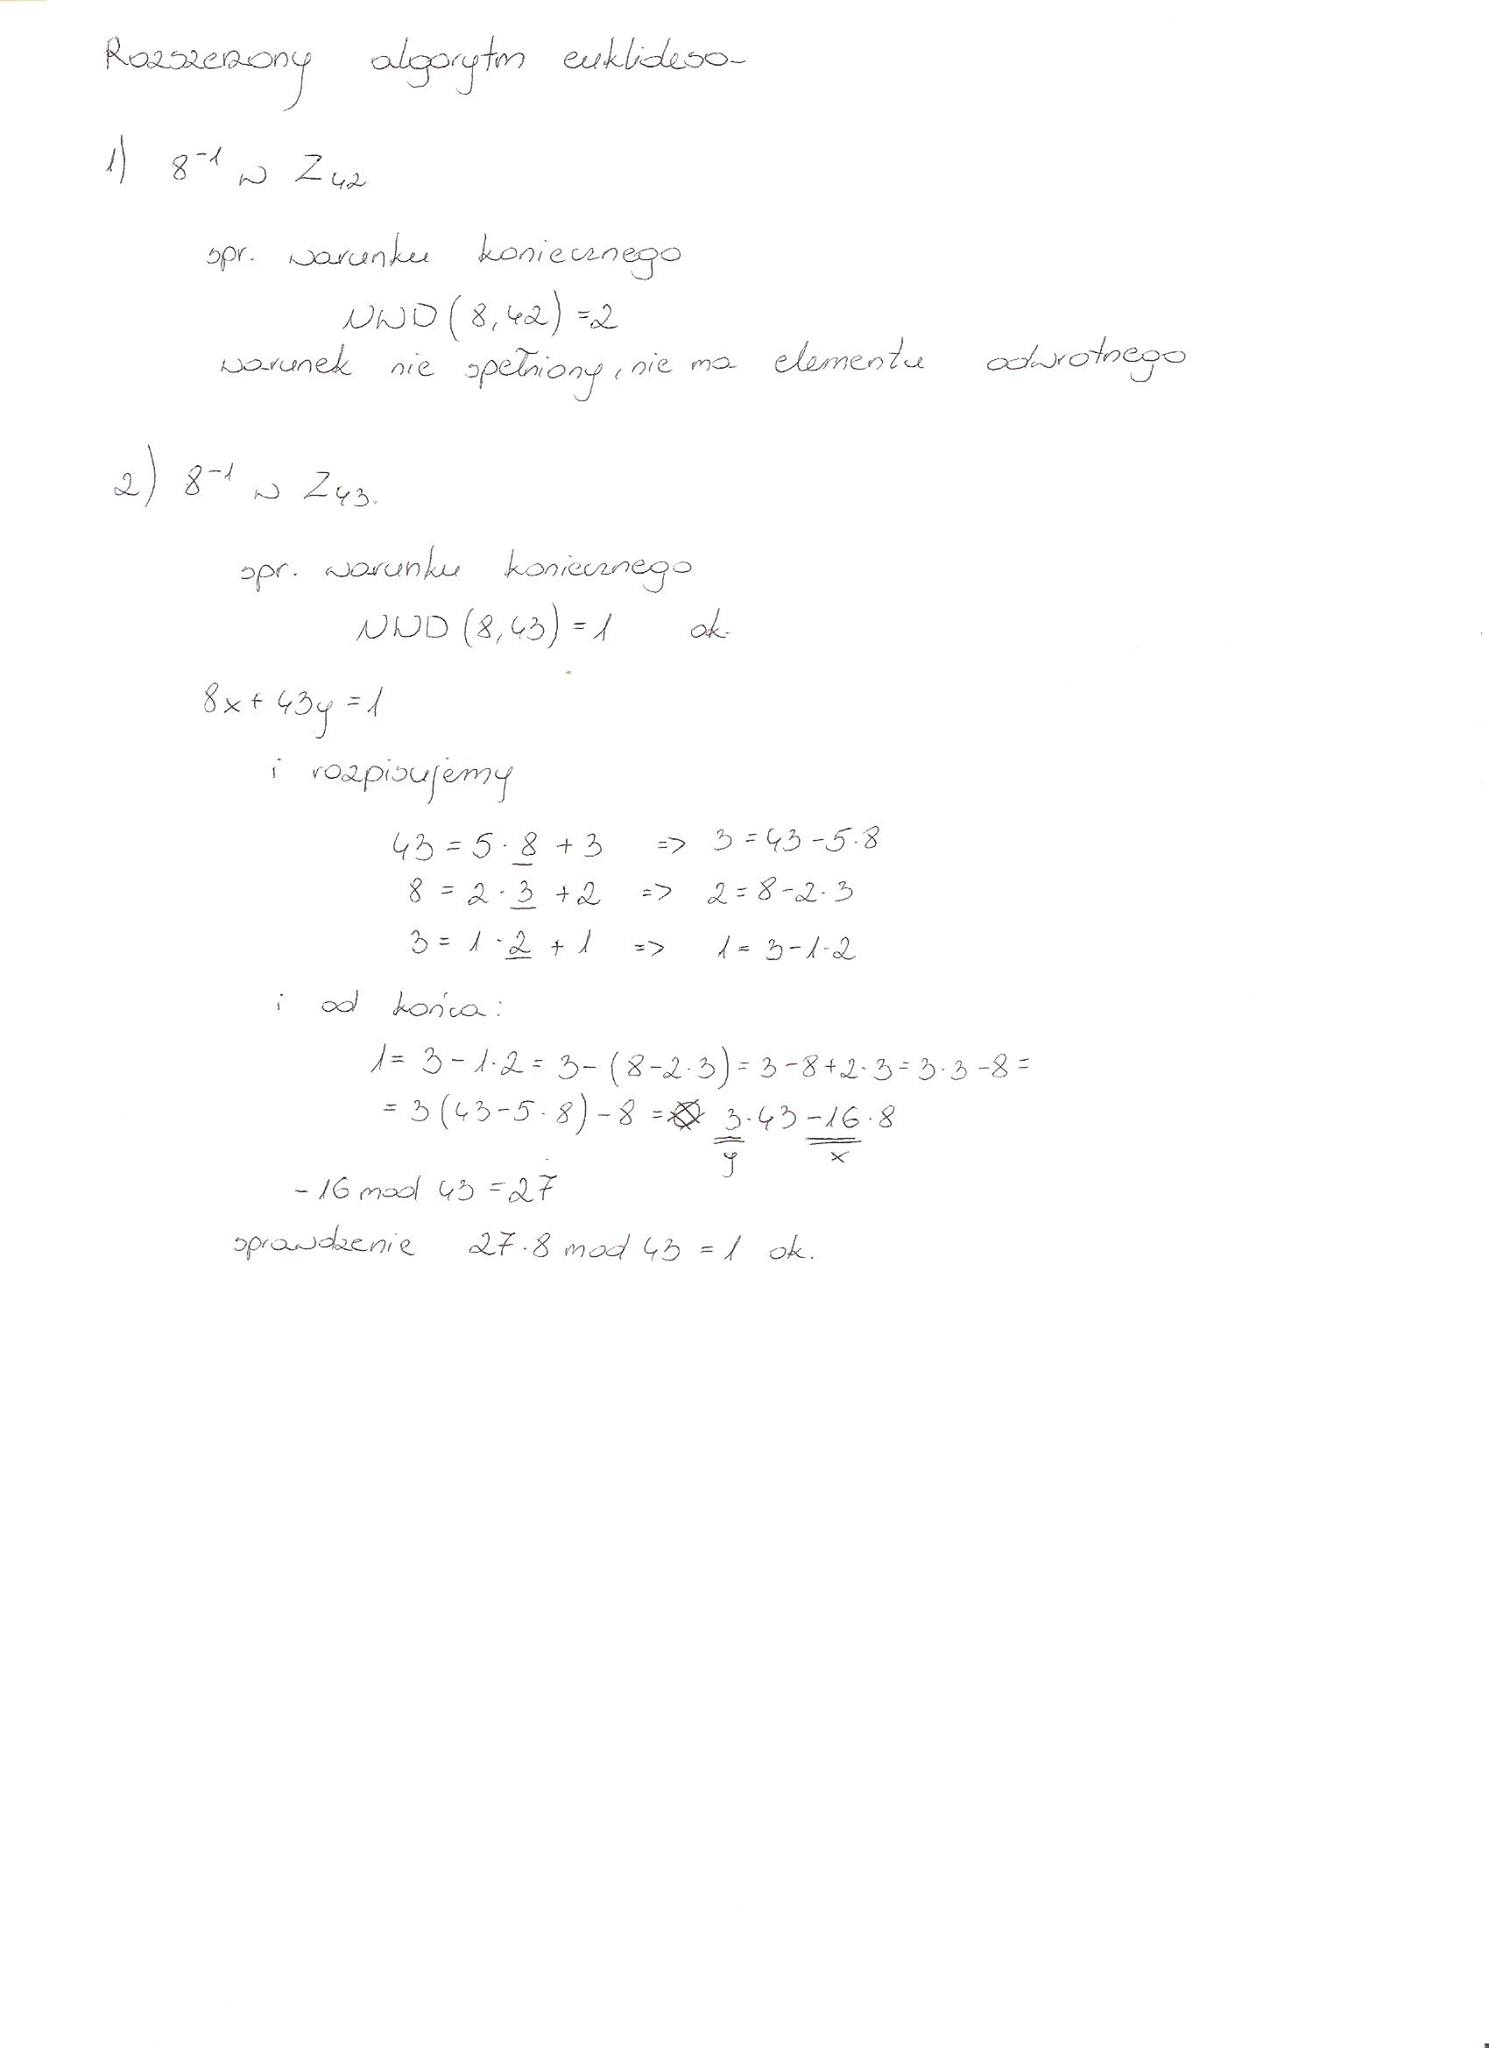 Rozszerzony algorytm euklidesa
1) 8⁻¹ w Z₄₂
spr. warunku koniecznego
NWD (8,42) = 2
warunek nie spełniony, nie ma elementu odwrotnego
2) 8⁻¹ w Z₄₃.
spr. warunku koniecznego
NWD (8,43) = 1 ok.
8x + 43y = 1
i rozpisujemy
43 = 5 · 8 + 3 => 3 = 43 - 5·8
8 = 2 · 3 + 2 => 2 = 8 - 2·3
3 = 1 · 2 + 1 => 1 = 3 - 1·2
i od końca:
1 = 3 - 1·2 = 3 - (8 - 2·3) = 3 - 8 + 2·3 = 3·3 - 8 =
= 3(43 - 5·8) - 8 = 3·43 - 16·8
y x
- 16 mod 43 = 27
sprawdzenie 27·8 mod 43 = 1 ok.